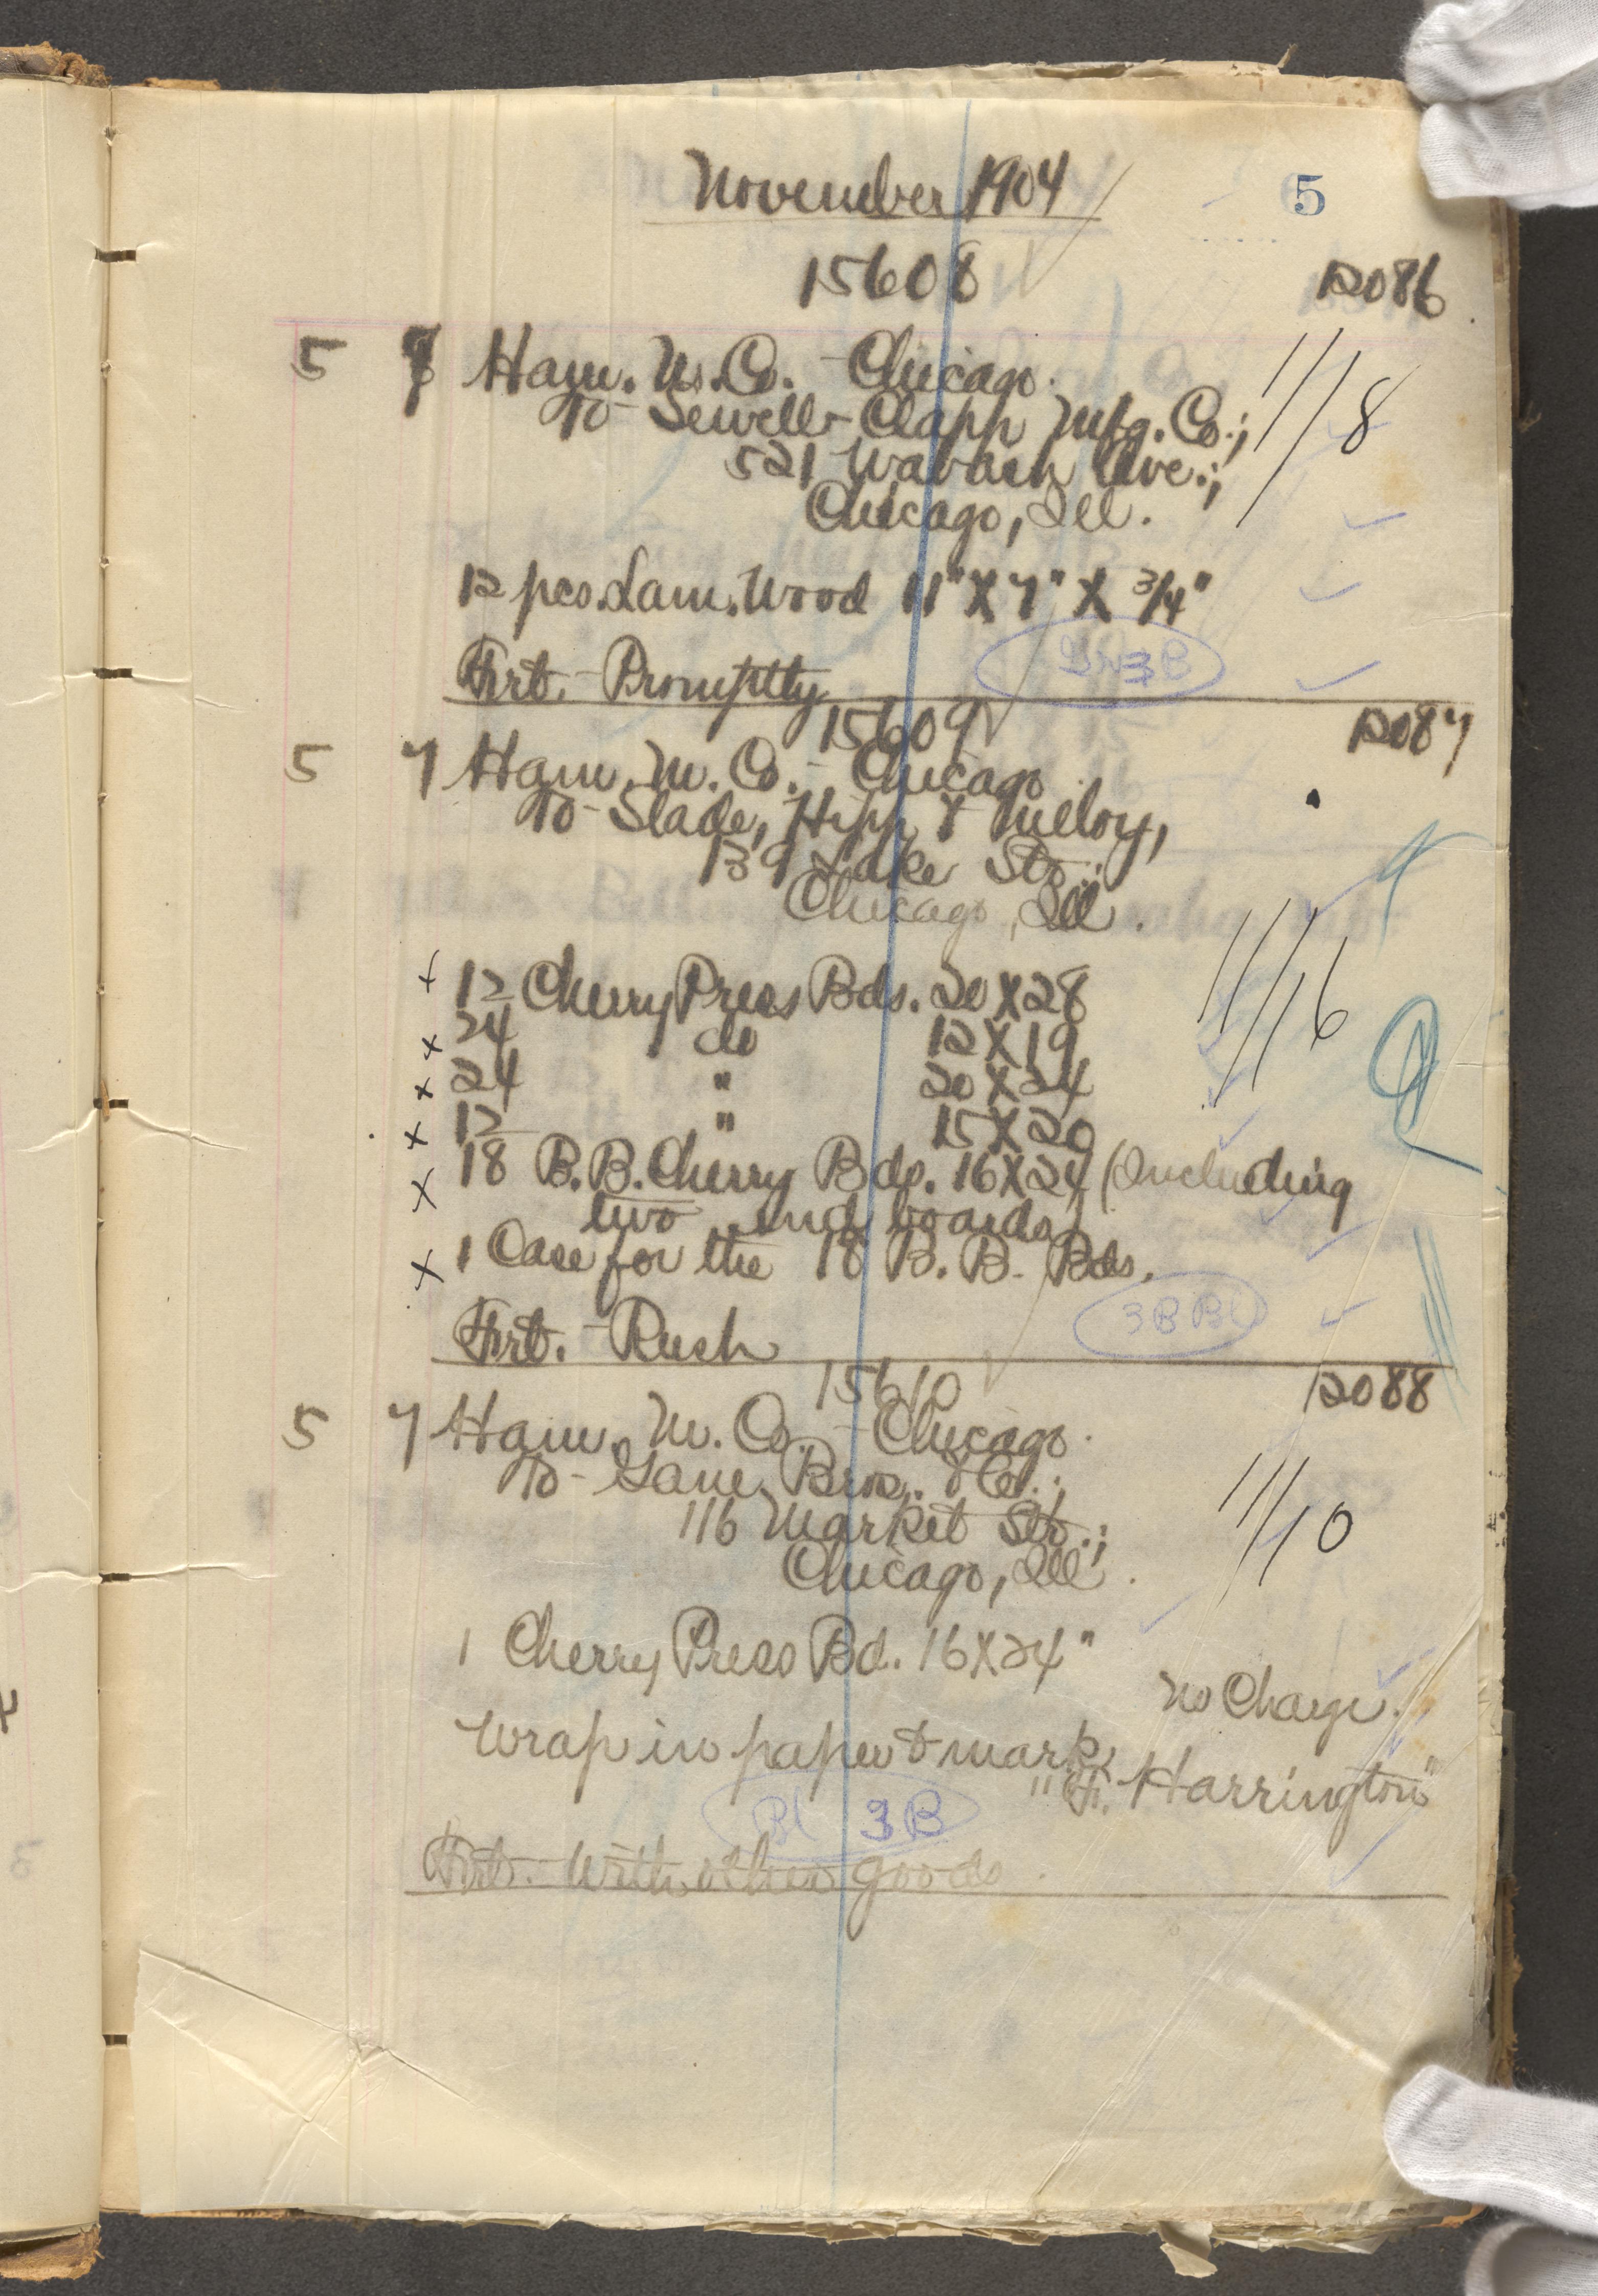 November 1904
5
15608
12086
5 7 Ham. M. Co. - Chicago.
To - Sewell-Clapp Mfg. Co.;
521 Wabash Ave.;
Chicago, Ill.
11/8
12 pcs. Lam. Wood 11" X 7" X 3/4"
Frt. - Promptly
15609
12087
5 7 Ham. M. Co. - Chicago
To - Slade, Hipp & Meloy,
139 Lake Str.;
Chicago, Ill.
11/16
x 12 Cherry Press Bds. 20 X 28
x 24 do 12 X 19
x 24 " 20 X 24
x 12 " 15 X 20
x 18 B.B. Cherry Bds. 16 X 24 (Including
two end boards)
x 1 Case for the 18 B. B. Bds.
3 B Bl
Frt. - Rush
15610
12088
5 7 Ham. M. Co. - Chicago.
To - Gane Bros. & Co.;
116 Market Str.;
Chicago, Ill.
11/10
1 Cherry Press Bd. 16 X 24"
No Charge.
Wrap in paper & mark
"F. Harrington"
Bl 3B
Frt. - With other goods.